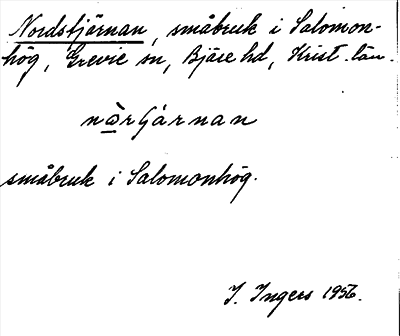 Nordstjärnan, småbruk i Salomon-
hög, Grevie sn, Bjäre hd, Krist. län.
småbruk i Salomonhög.
I. Ingers 1956.